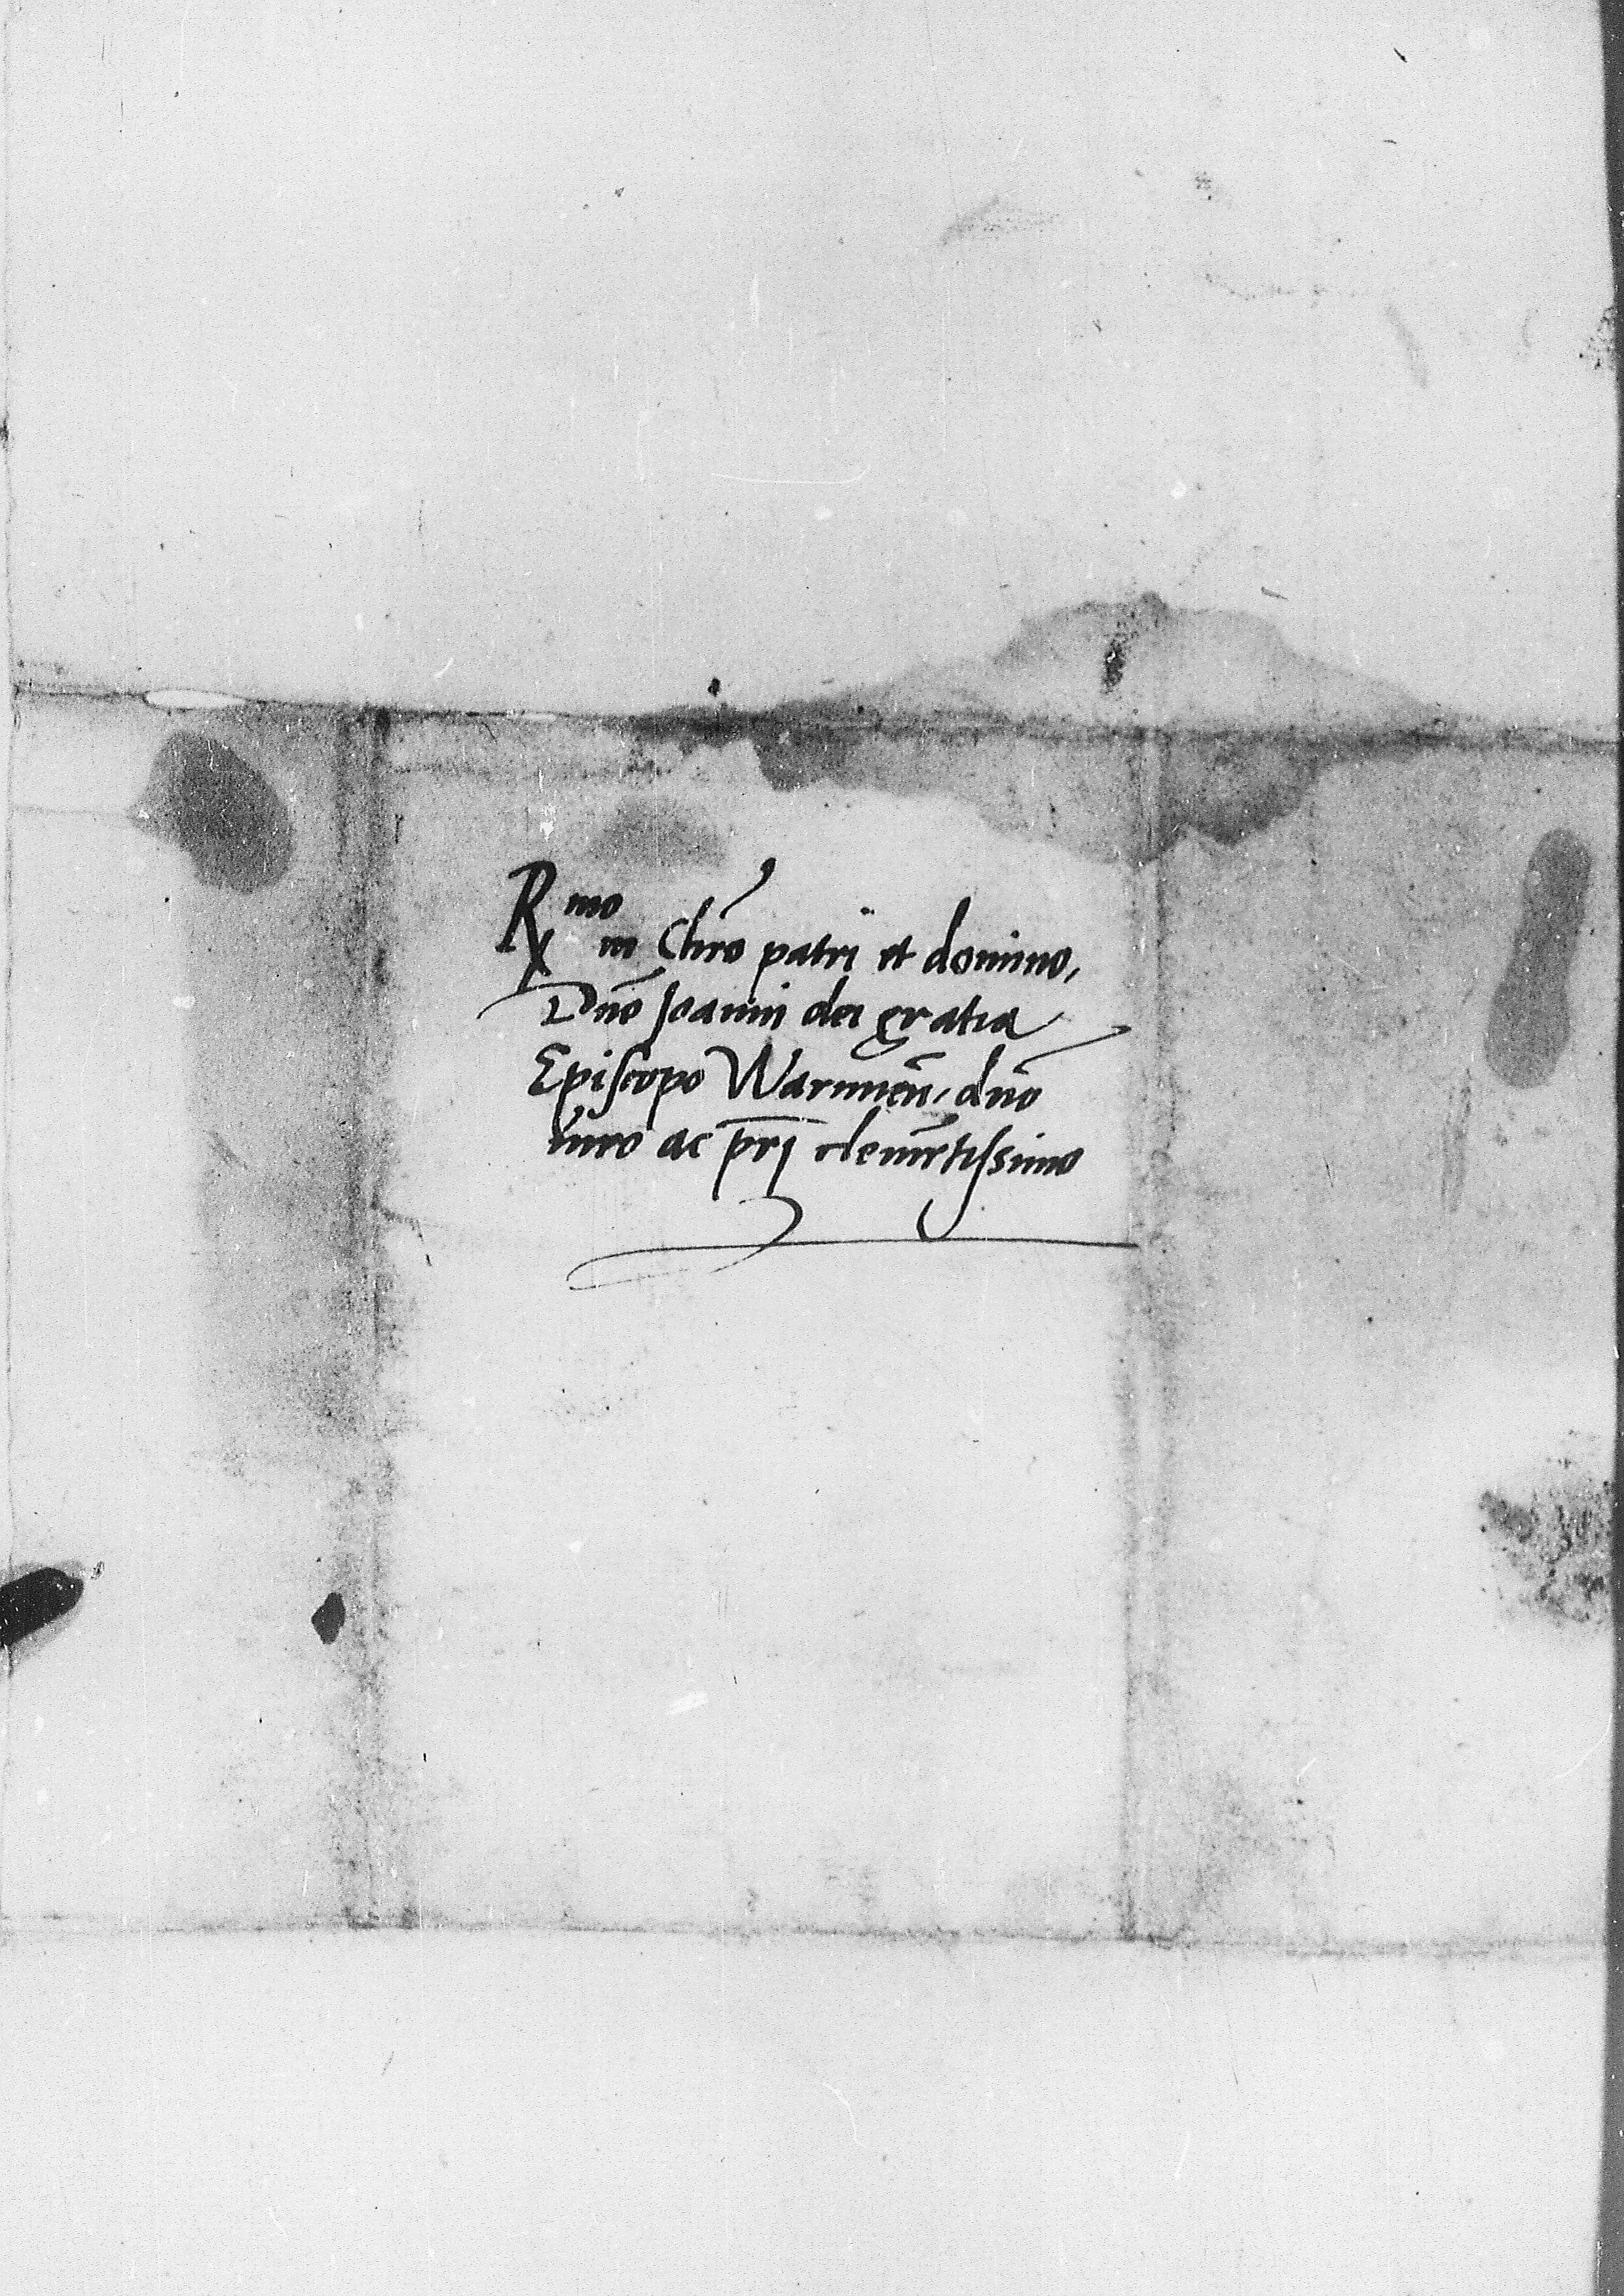 R<sup>mo</sup> in Chr̃o patri et domino,
Dño Joanni dei gratia
Episcopo Warmien̄, dño
suo ac p̄ri clementissimo